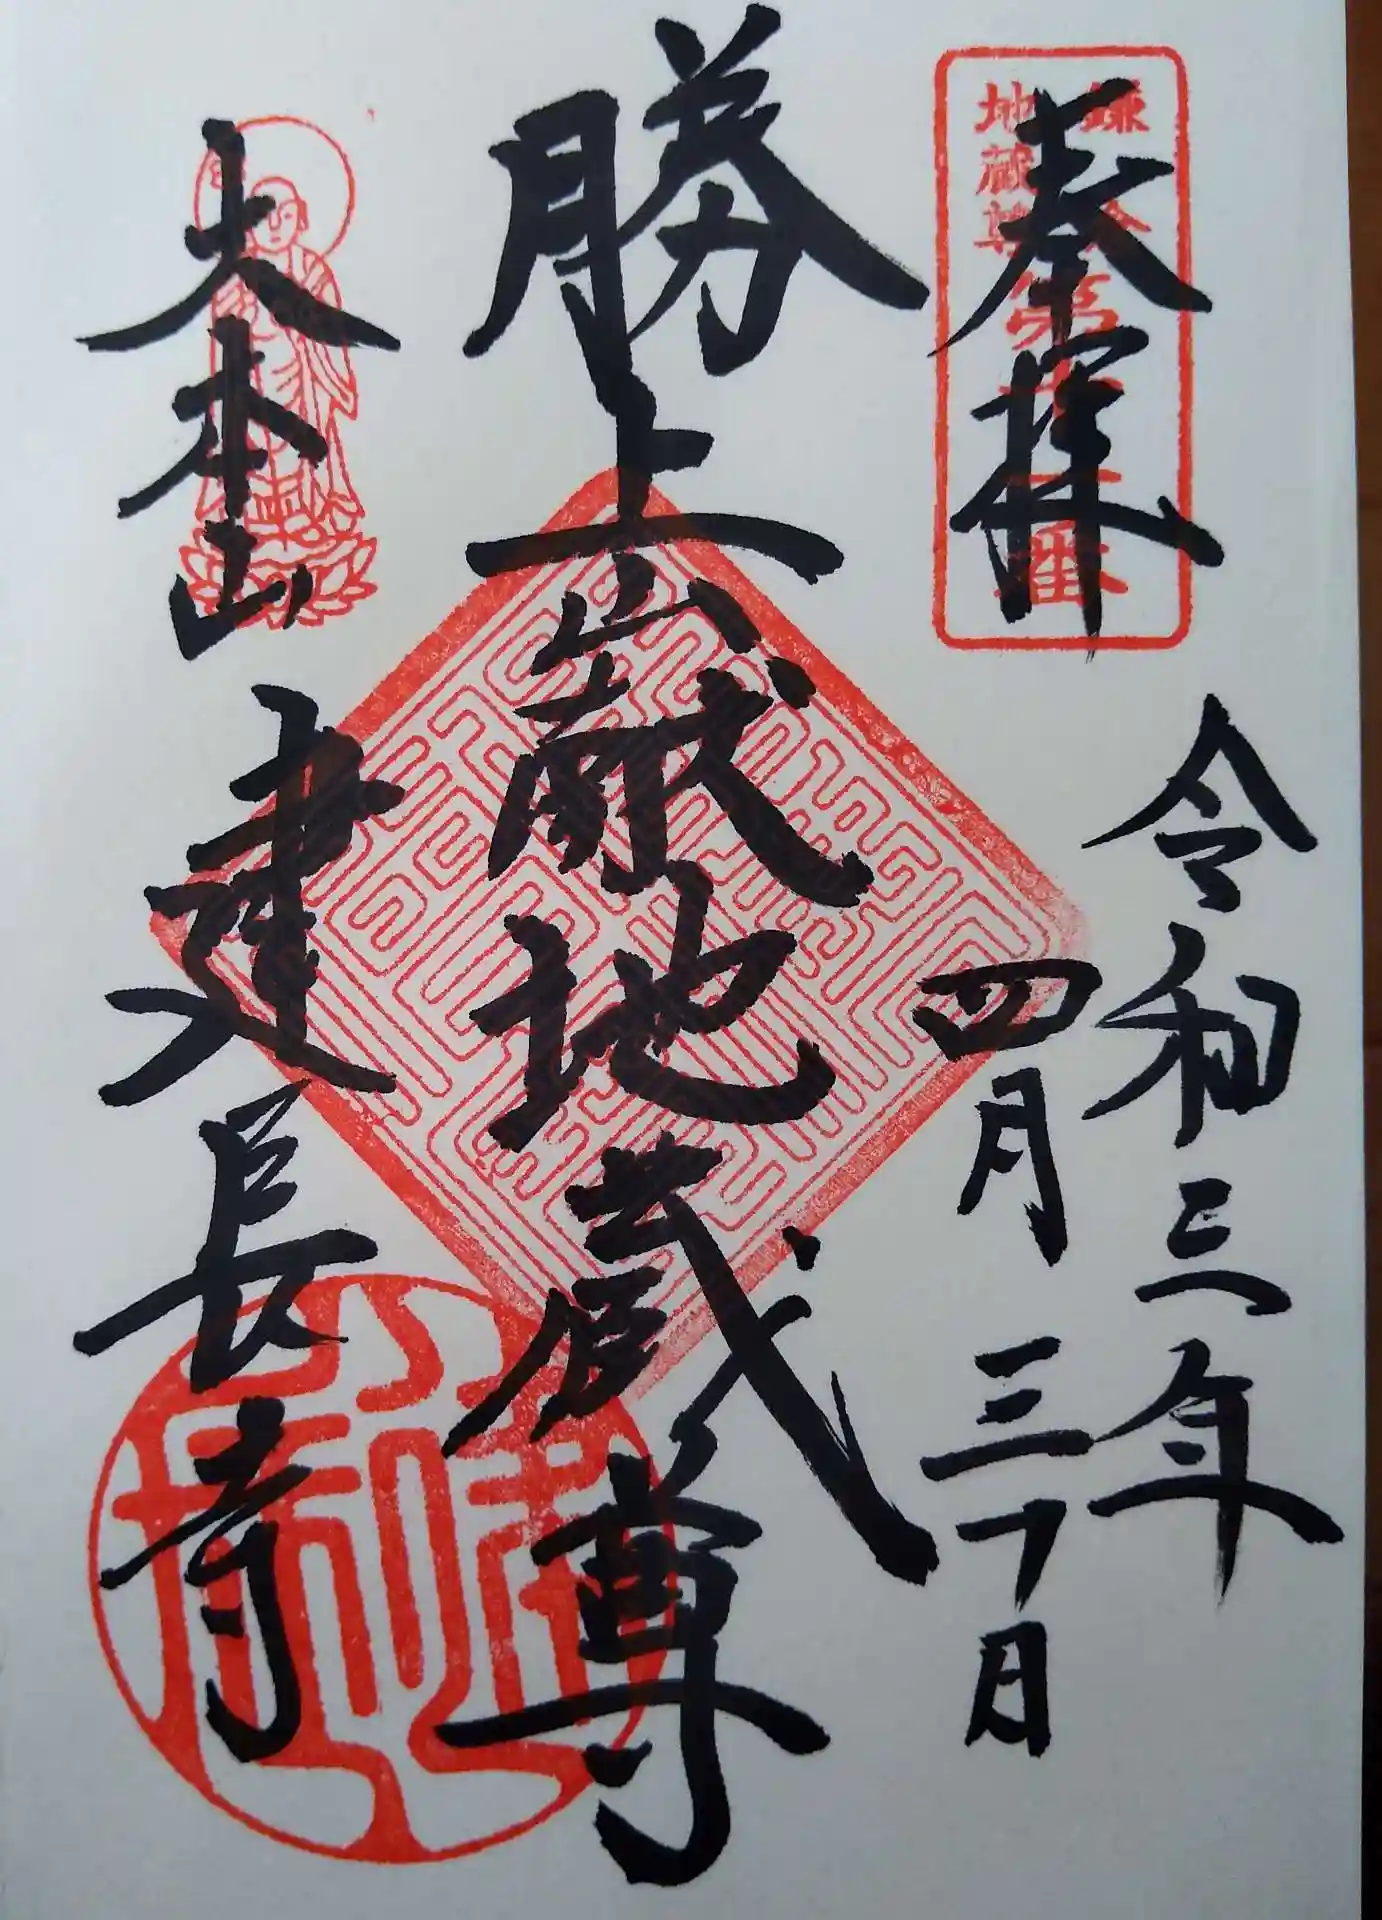 鎌倉
地蔵尊
第十一番
奉拝
令和三年
四月三十日
勝上嶽地蔵尊
大本山
建長寺